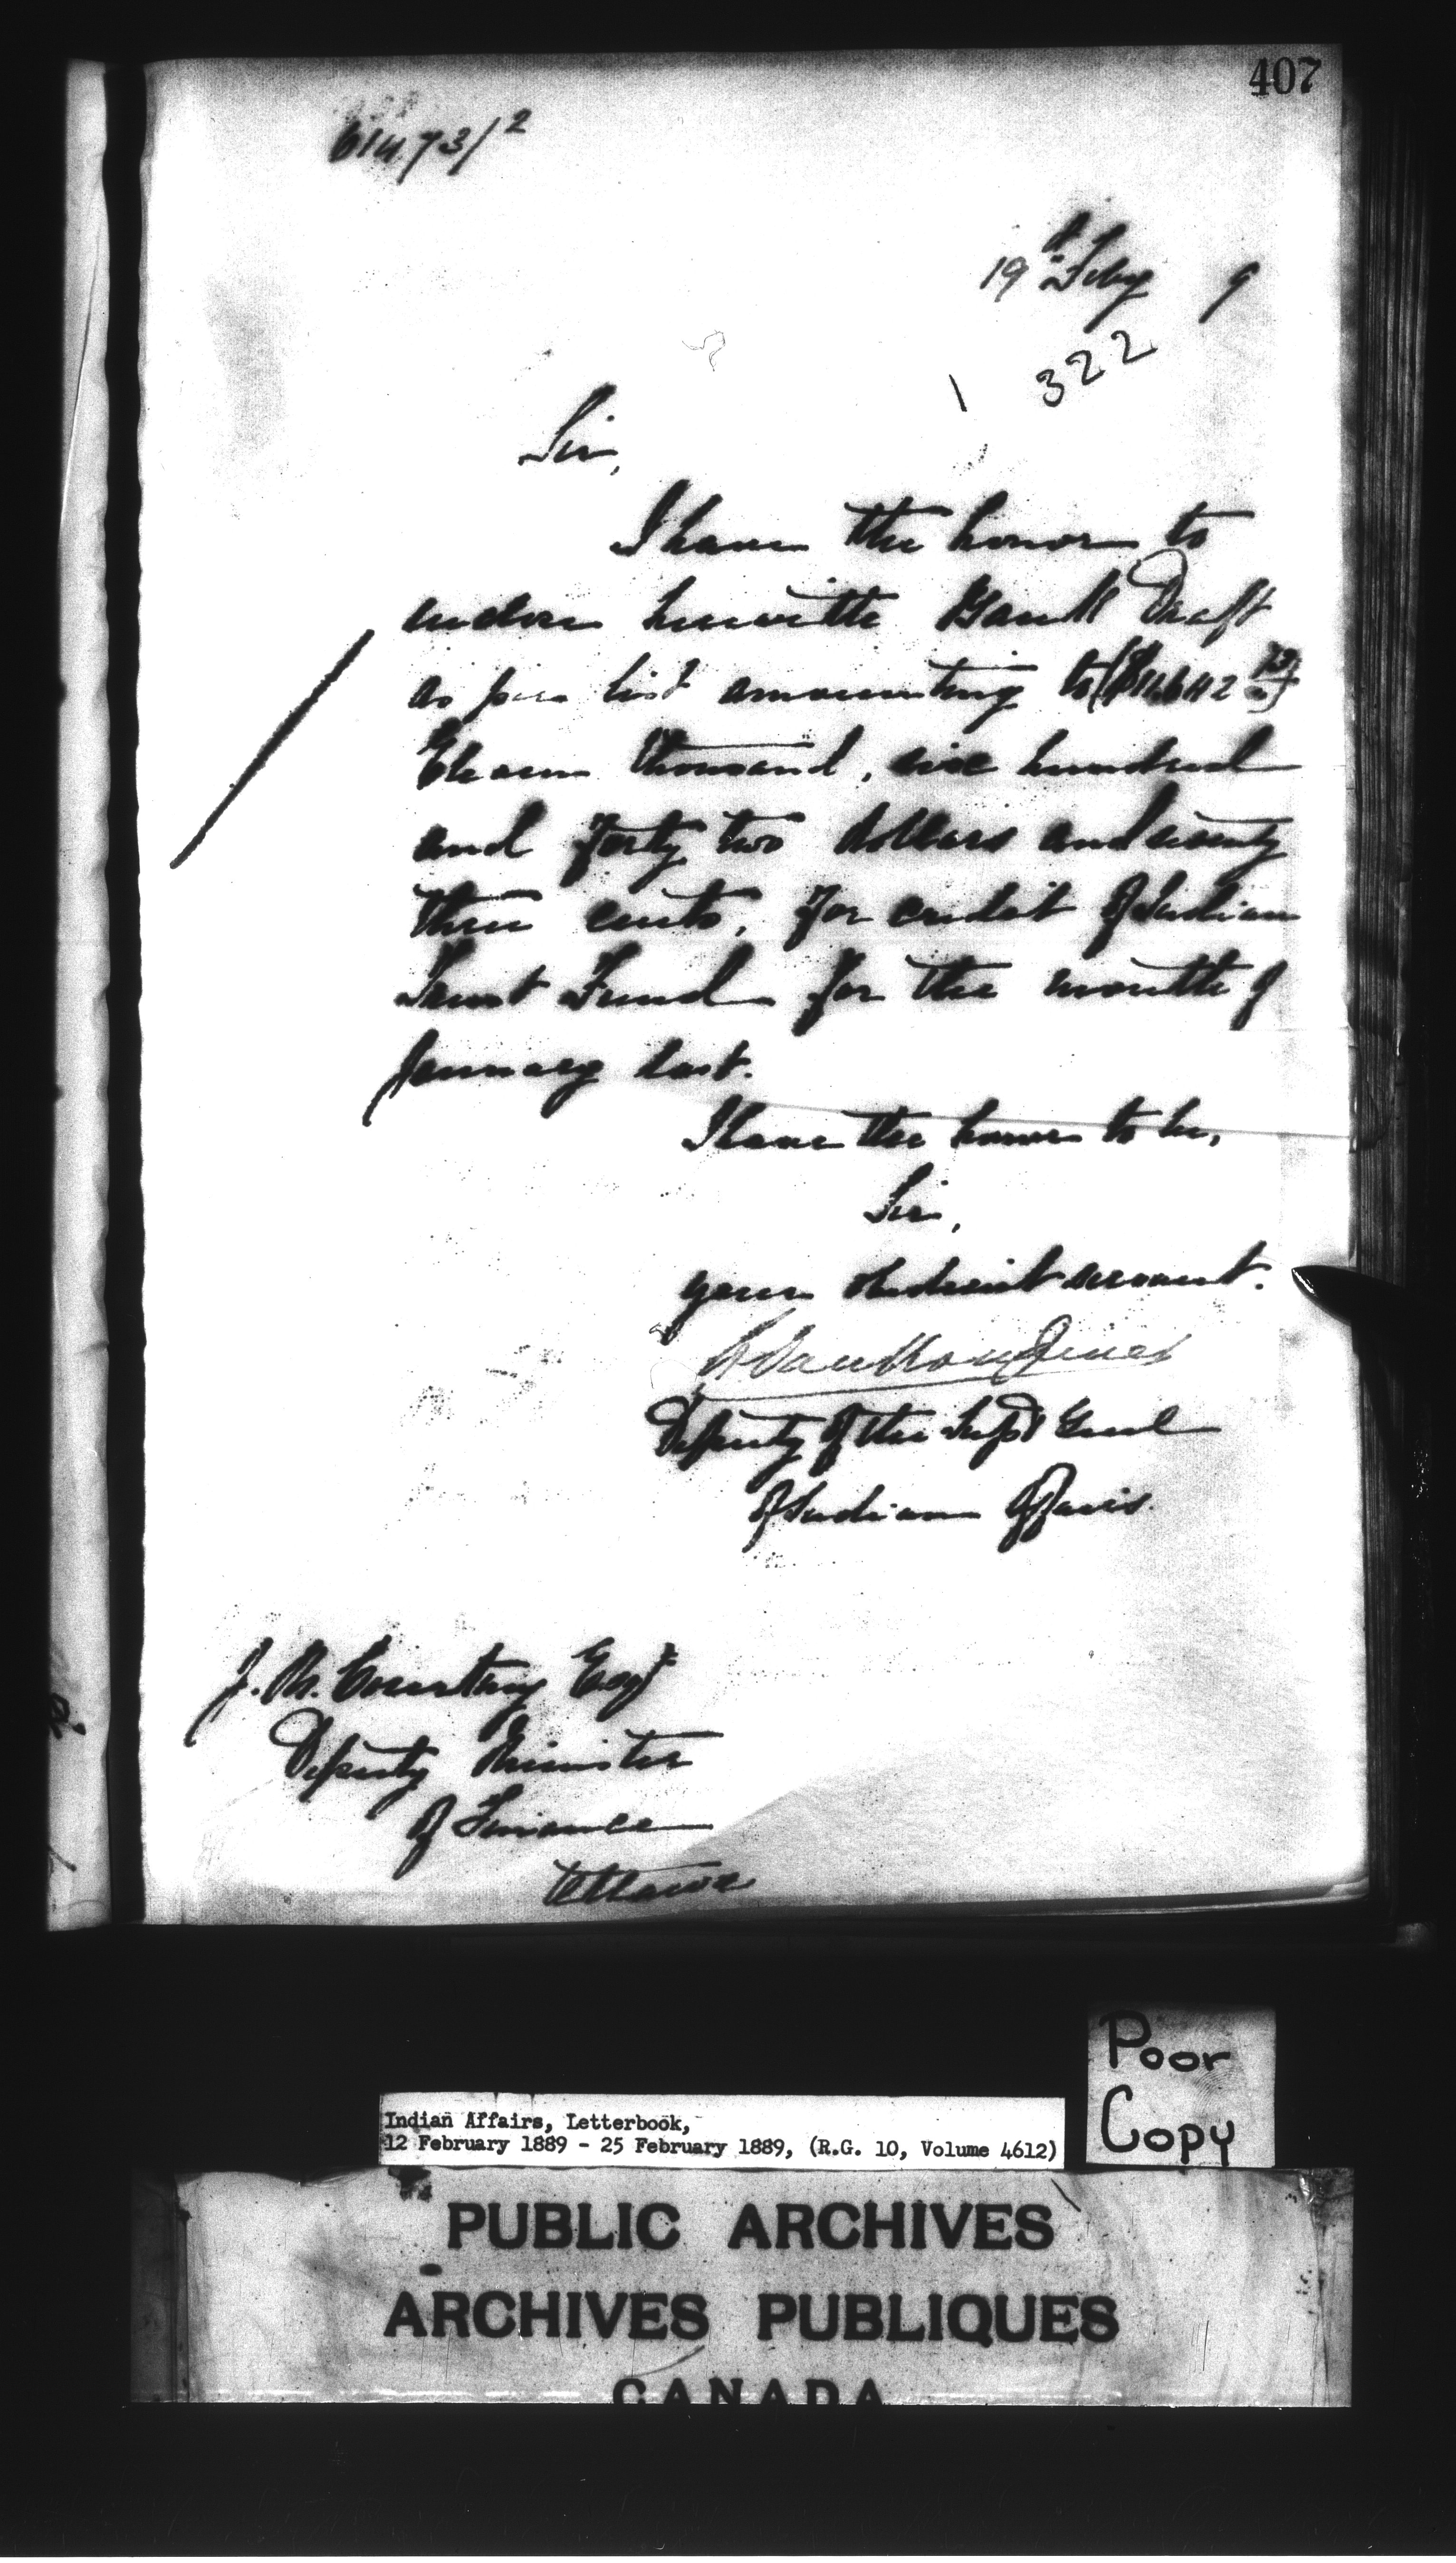 407
61473/2
19th Feby 9
322
Sir,
I have the honor to
enclose herewith Bank Draft
as per list amounting to ($11,642 73/)
Eleven thousand, six hundred
and forty two dollars and seventy
three cents, for credit of Indian
Trust Fund for the month of
January last.
I have the honor to be,
Sir,
your obedient servant.
L VanKoughnet
Deputy of the Supt Genl
of Indian Affairs.
J. M. Courtney Esqr
Deputy Minister
of Finance
Ottawa
Poor
Copy
Indian Affairs, Letterbook,
12 February 1889 - 25 February 1889, (R.G. 10, Volume 4612)
PUBLIC ARCHIVES
ARCHIVES PUBLIQUES
CANADA